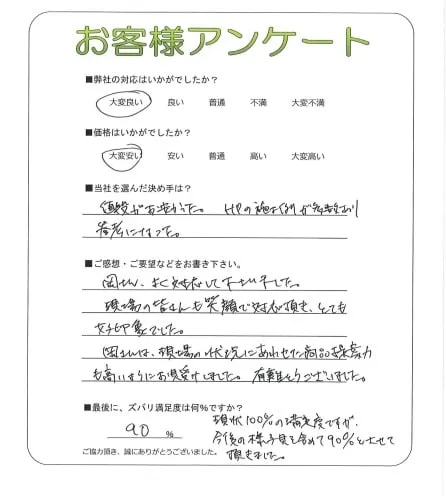 お客様アンケート
■弊社の対応はいかがでしたか？
大変良い 良い 普通 不満 大変不満
■価格はいかがでしたか？
大変安い 安い 普通 高い 大変高い
■当社を選んだ決め手は？
値段がお安かった。 HPの施工例が多数あり
参考になった。
■ご感想・ご要望などをお書き下さい。
岡さん、よく対応して下さいました。
現場の皆さんも笑顔で対応頂き、とても
好印象でした。
岡さんは、現場の状況にあわせた商品提案力
も高いようにお見受けしました。有難うございました。
■最後に、ズバリ満足度は何%ですか？
90 %
現状100%の満足度ですが、
今後の様子見を含めて90%とさせて
頂きました。
ご協力頂き、誠にありがとうございました。